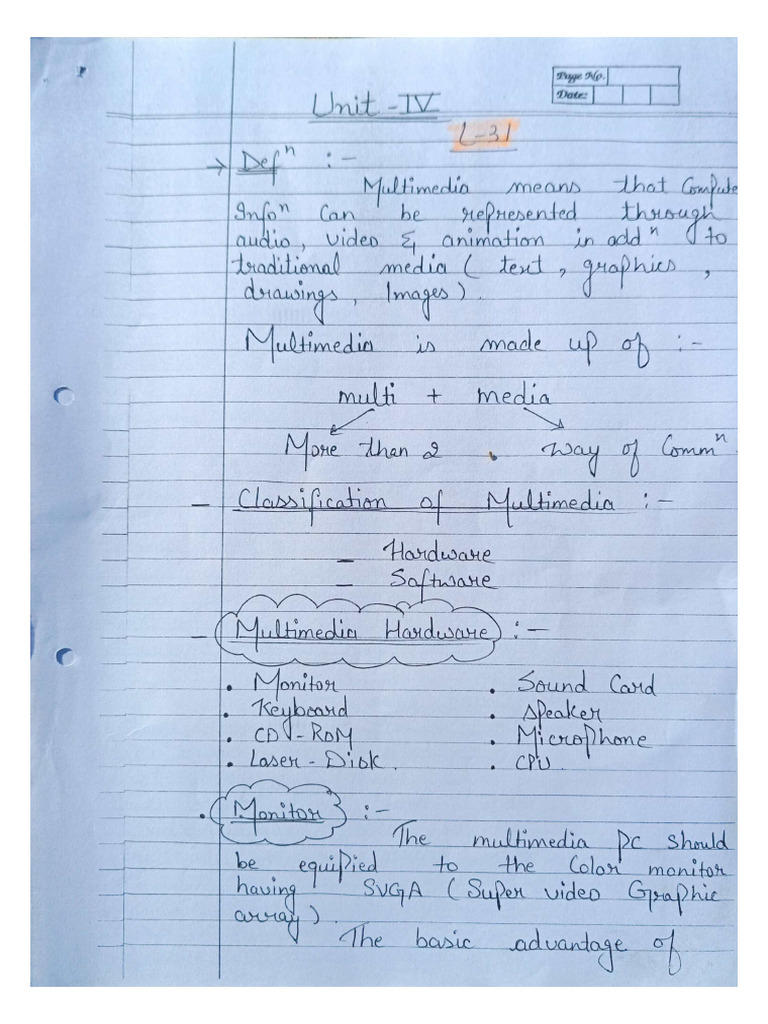 Page No.
Date:
Unit - IV
L-31
→ Defⁿ :-
Multimedia means that Compute
Infoⁿ can be represented through
audio, video & animation in addⁿ to
traditional media ( text , graphics ,
drawings , Images ) .
Multimedia is made up of :-
multi + media
More than 2 . Way of Commⁿ
- Classification of Multimedia :-
- Hardware
- Software
- Multimedia Hardware :-
• Monitor • Sound Card
• Keyboard • Speaker
• CD - ROM • Microphone
• Laser - Disk . • CPU .
• Monitor :-
The multimedia pc should
be equipied to the Color monitor
having SVGA ( Super video Graphic
array ) .
The basic advantage of